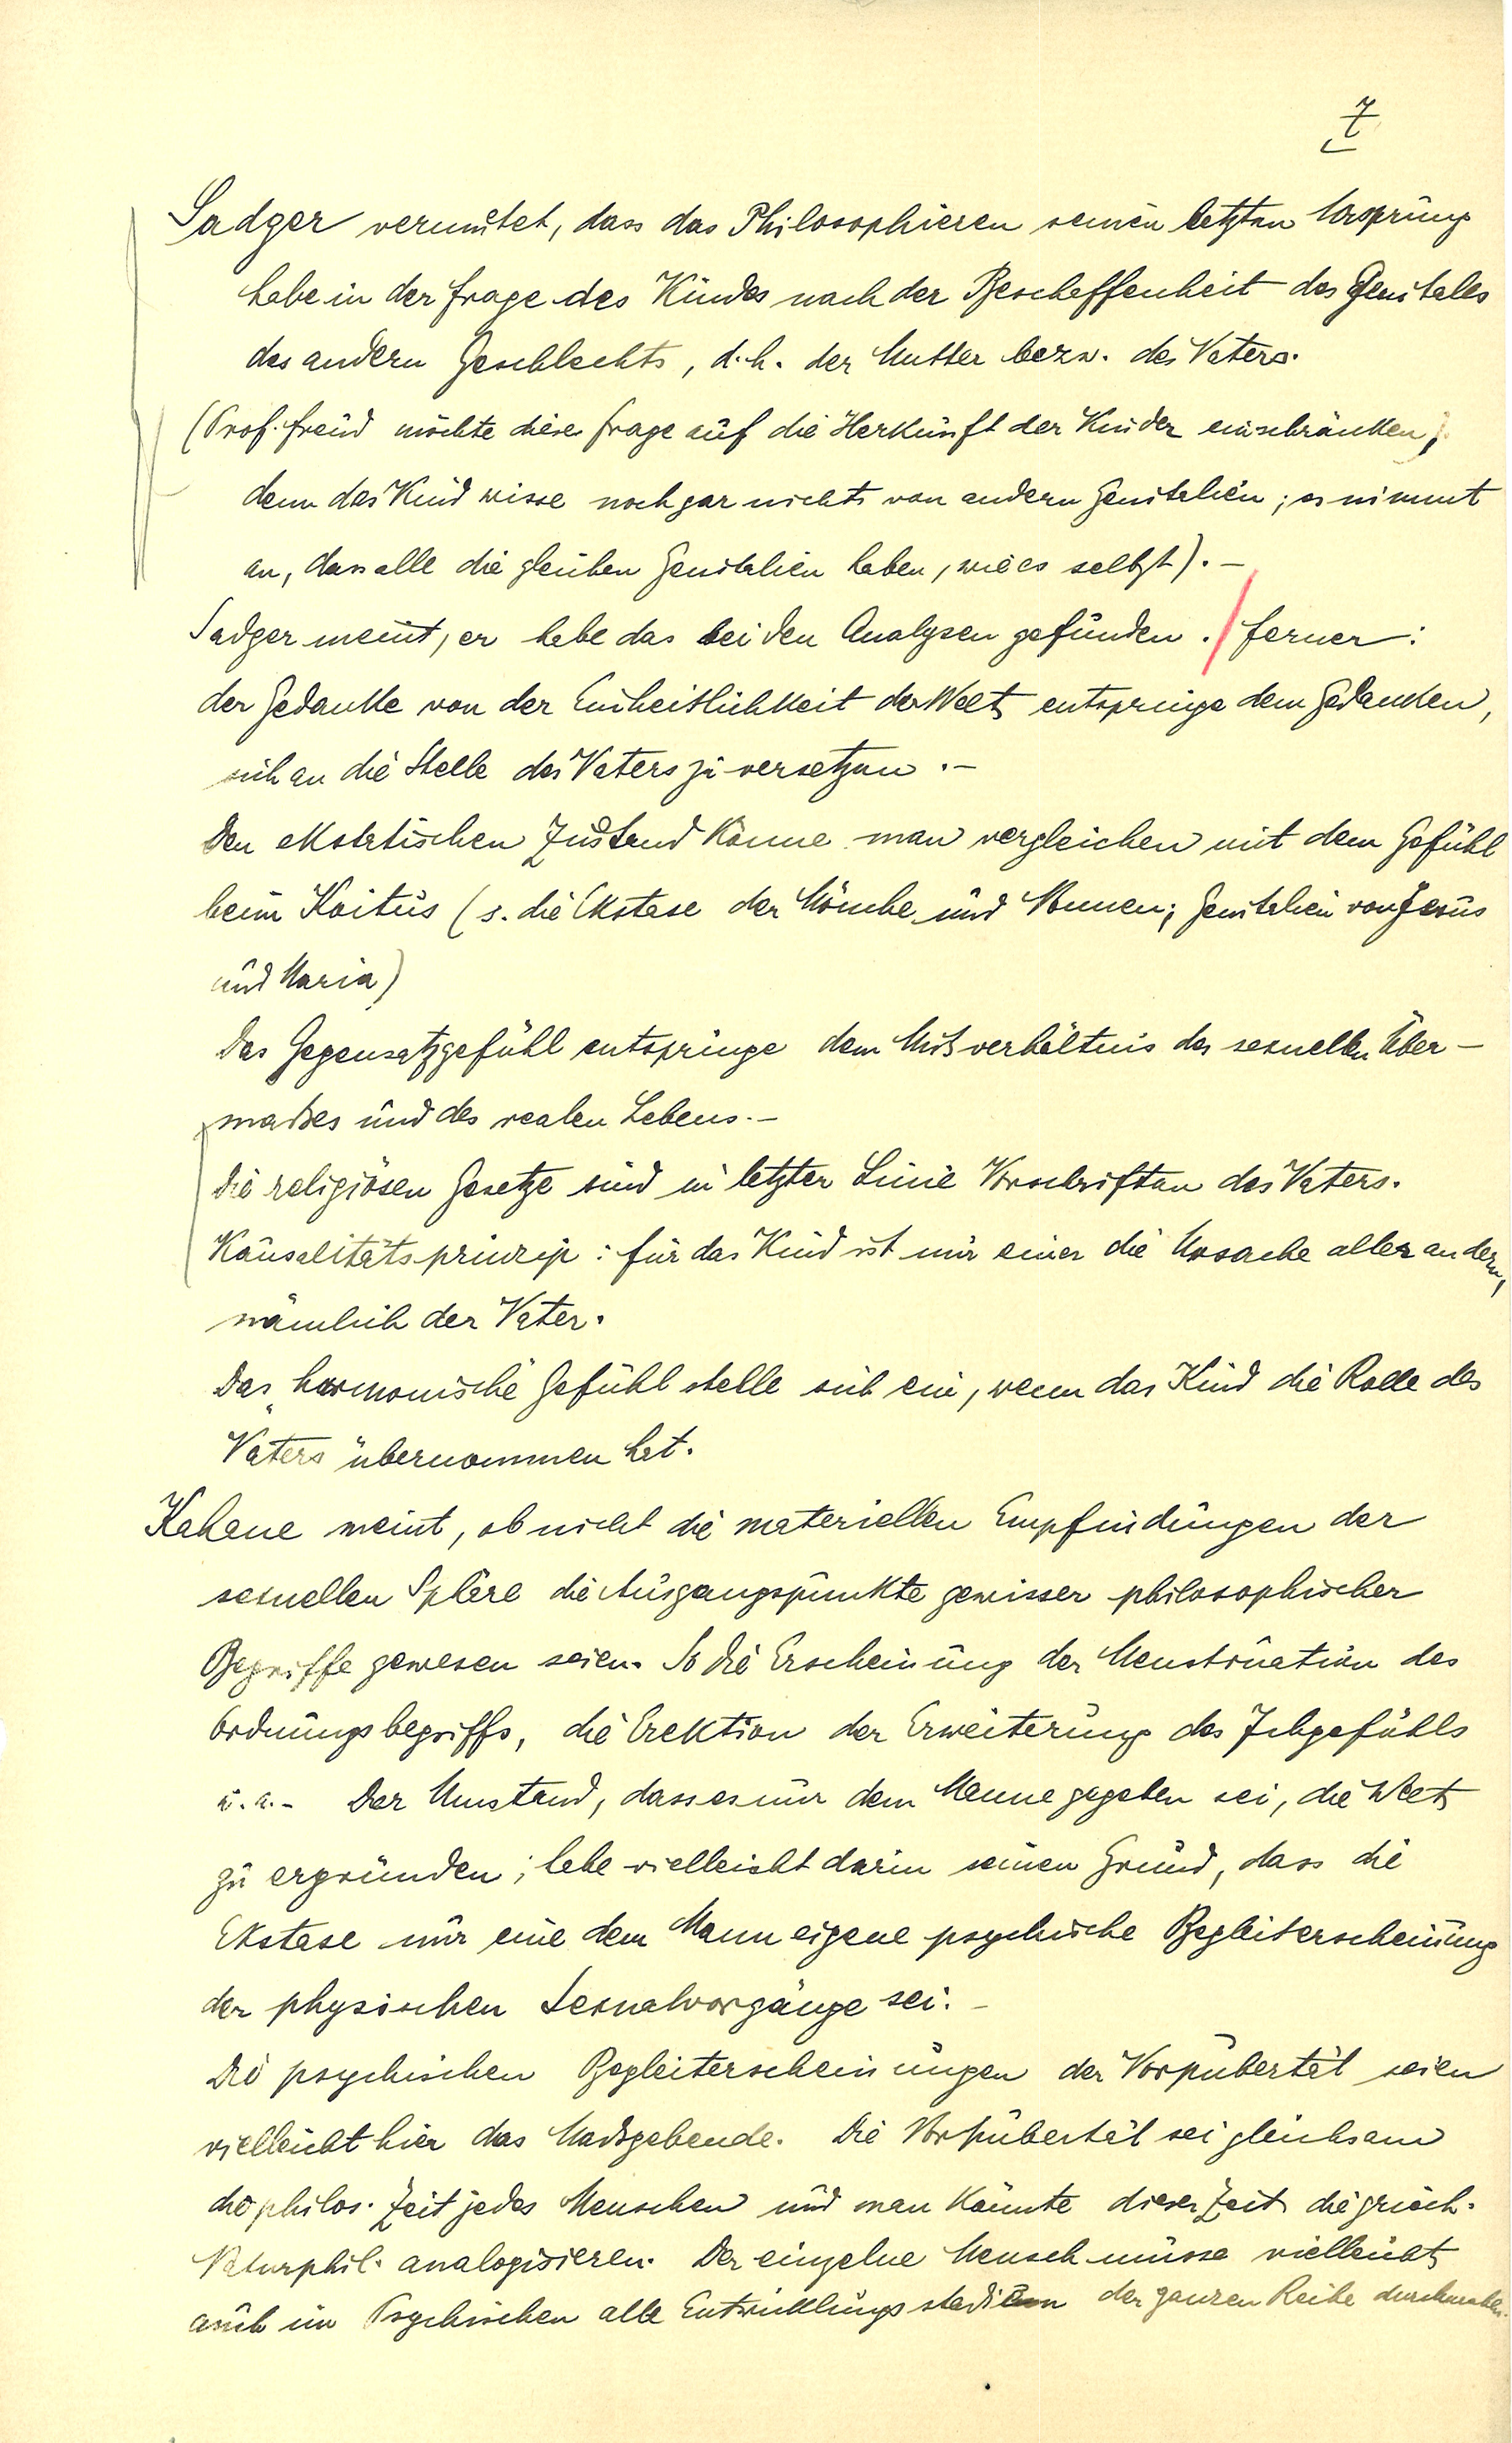 7
Sadger vermutet, dass das Philosophieren seinen letzten Ursprung
habe in der Frage des Kindes nach der Beschaffenheit des Genitales
des andern Geschlechts, d.h. der Mutter bezw. des Vaters.
(Prof. Freud möchte diese Frage auf die Herkunft der Kinder einschränken;
denn das Kind wisse noch gar nichts von andern Genitalien; es nimmt
an, dass alle die gleichen Genitalien haben, wie es selbst). –
Sadger meint, er habe das bei den Analysen gefunden. / ferner:
der Gedanke von der Einheitlichkeit der Welt entspringe dem Gedanken,
sich an die Stelle des Vaters zu versetzen. –
Den ekstatischen Zustand könne man vergleichen mit dem Gefühl
beim Koitus (s. die Ekstase der Mönche und Nonnen; Genitalien von Jesus
und Maria)
Das Gegensatzgefühl entspringe dem Misverhältnis des sexuellen Über-
maßes und des realen Lebens. –
Die religiösen Gesetze sind in letzter Linie Vorschriften des Vaters.
Kausalitätsprinzip: für das Kind ist nur einer die Ursache aller andern,
nämlich der Vater.
Das harmonische Gefühl stelle sich ein, wenn das Kind die Rolle des
Vaters übernommen hat.
Kahane meint, ob nicht die materiellen Empfindungen der
sexuellen Sphäre die Ausgangspunkte gewisser philosophischer
Begriffe gewesen seien. So die Erscheinung der Menstruation des
Ordnungsbegriffs, die Erektion der Erweiterung des Ichgefühls
u.a. – Der Umstand, dass es nur dem Manne gegeben sei, die Welt
zu ergründen; habe vielleicht darin seinen Grund, dass die
Ekstase nur eine dem Mann eigene psychische Begleiterscheinung
der physischen Sexualvorgänge sei. –
Die psychischen Begleiterscheinungen der Vorpubertät seien
vielleicht hier das Maßgebende. Die Vorpubertät sei gleichsam
die philos. Zeit jedes Menschen und man könnte dieser Zeit die griech.
Naturphil. analogisieren. Der einzelne Mensch müsse vielleicht
auch im Psychischen alle Entwicklungsstadien der ganzen Reihe durchmachen.